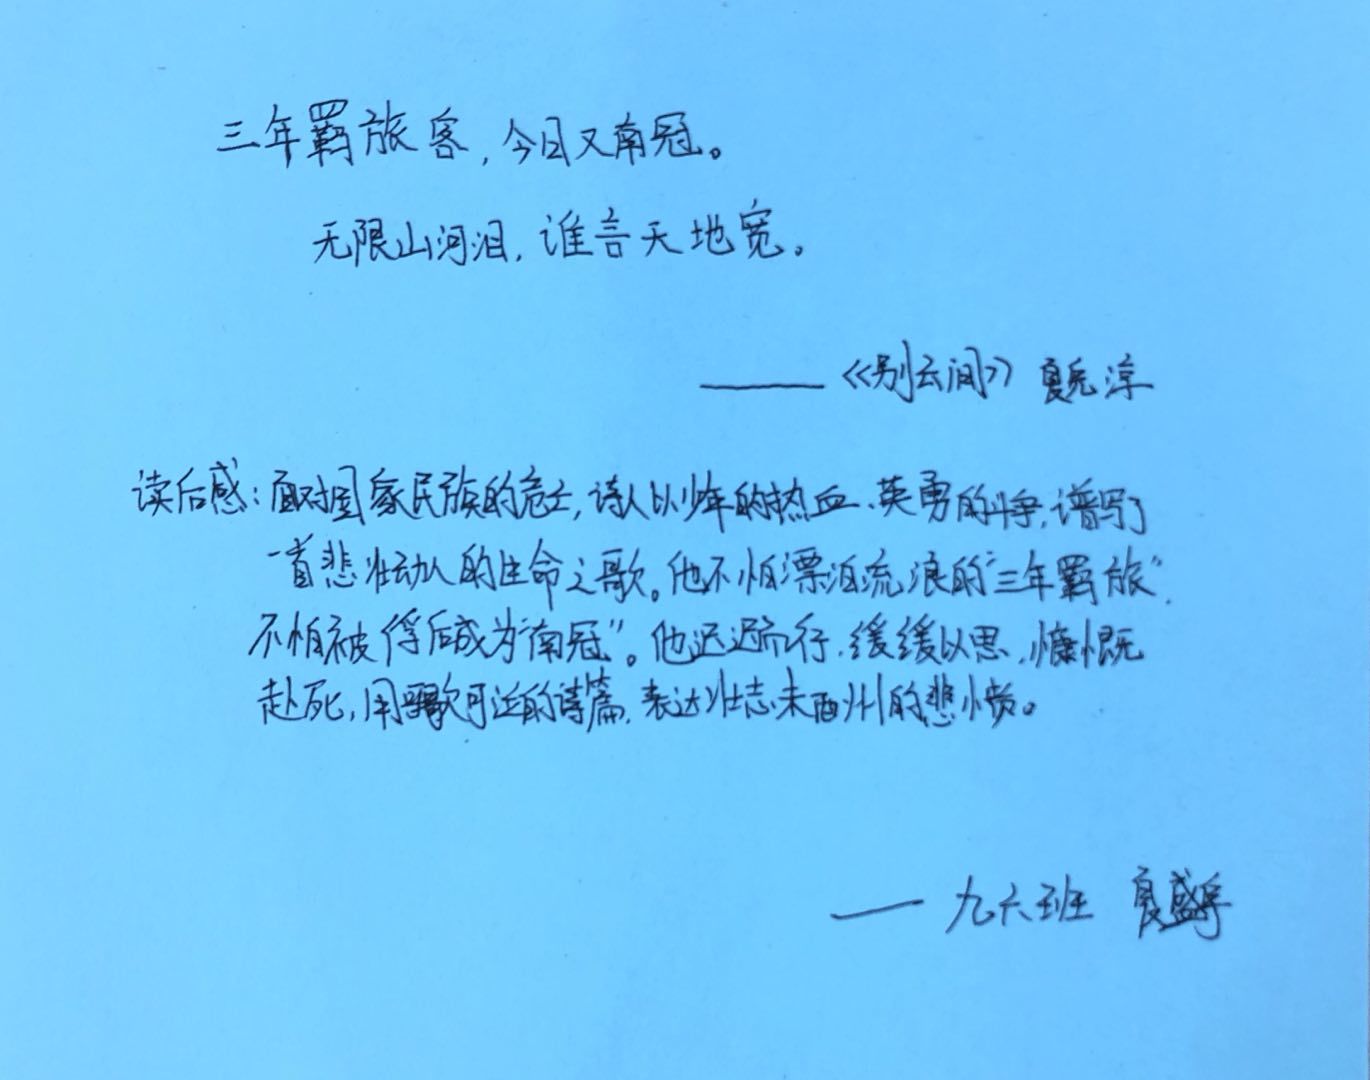 三年羁旅客，今日又南冠。
无限山河泪，谁言天地宽。
——《别云间》夏完淳
读后感：面对国家民族的危亡，诗人以少年的热血、英勇的斗争，谱写了
一首悲壮动人的生命之歌。他不怕漂泊流浪的“三年羁旅”，
不怕被俘后成为“南冠”。他迟迟而行，缓缓以思，慷慨
赴死，用歌可泣的诗篇，表达壮志未酬的悲愤。
——九六班 夏盛宇